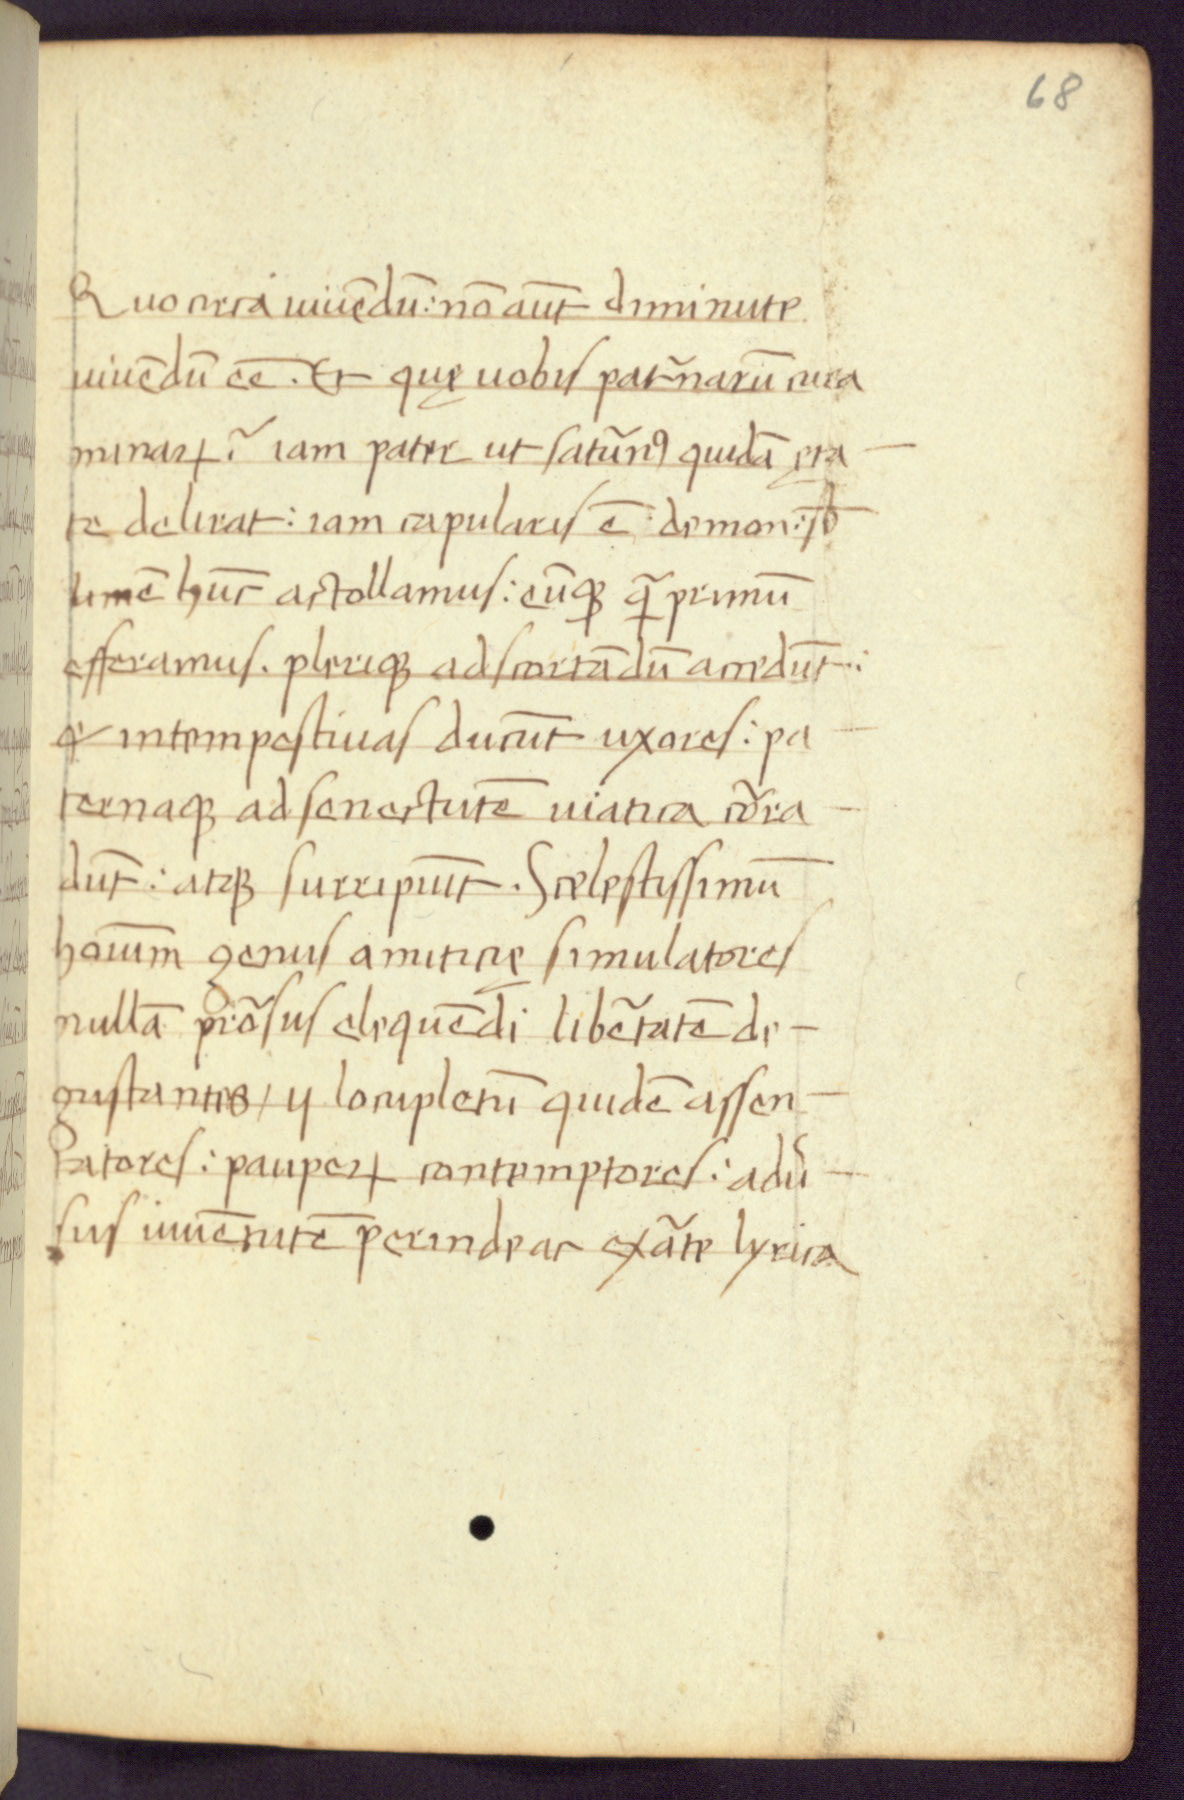 68
Quocircā uiuēdū: nō aūt diminute
uiuēdū eē. Et quę uobis pat̄narū cura
minaꝝ? iam pater ut saturn̄ꝰ quidā ęta
te delirat: iam capularis ē demon: sb̄
limē hūc actollamus: eūqꝫ q̄ primū
efferamus. pleriqꝫ ad scortādū accedūt:
& intempestiuas ducūt uxores: pa
ternaqꝫ ad senectutē uiatica cōra
dūt: atqꝫ surripiūt. Scelestissimū
hoīum genus amiticię simulatores
nullā prōsus eloquēdi libētatē de
gustantes / ij locupletū quidē assen
tatores: paupeꝝ contemptores: adū
sus iuuētutē perinde ac exāte lyrica